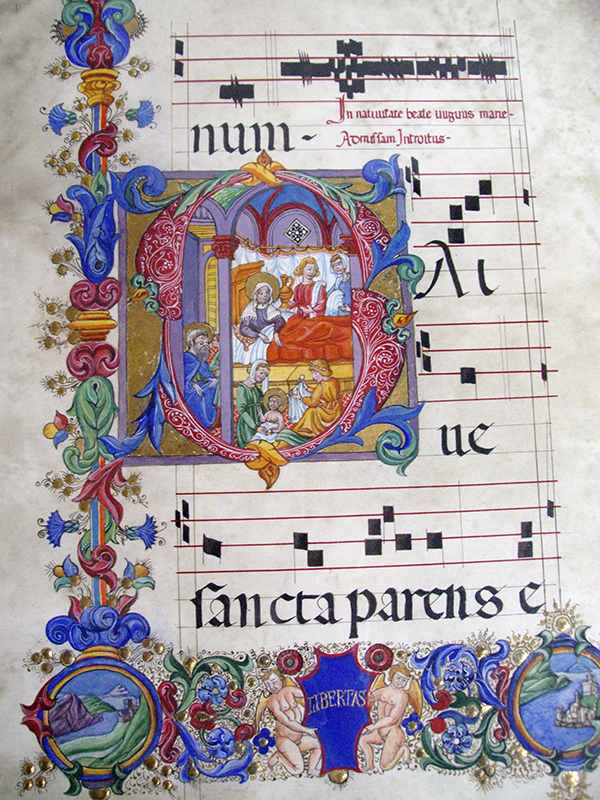 num-
In natiuitate beate uirginis marie-
Ad missam Introitus-
SAl
ue
sancta parens e
LIBERTAS